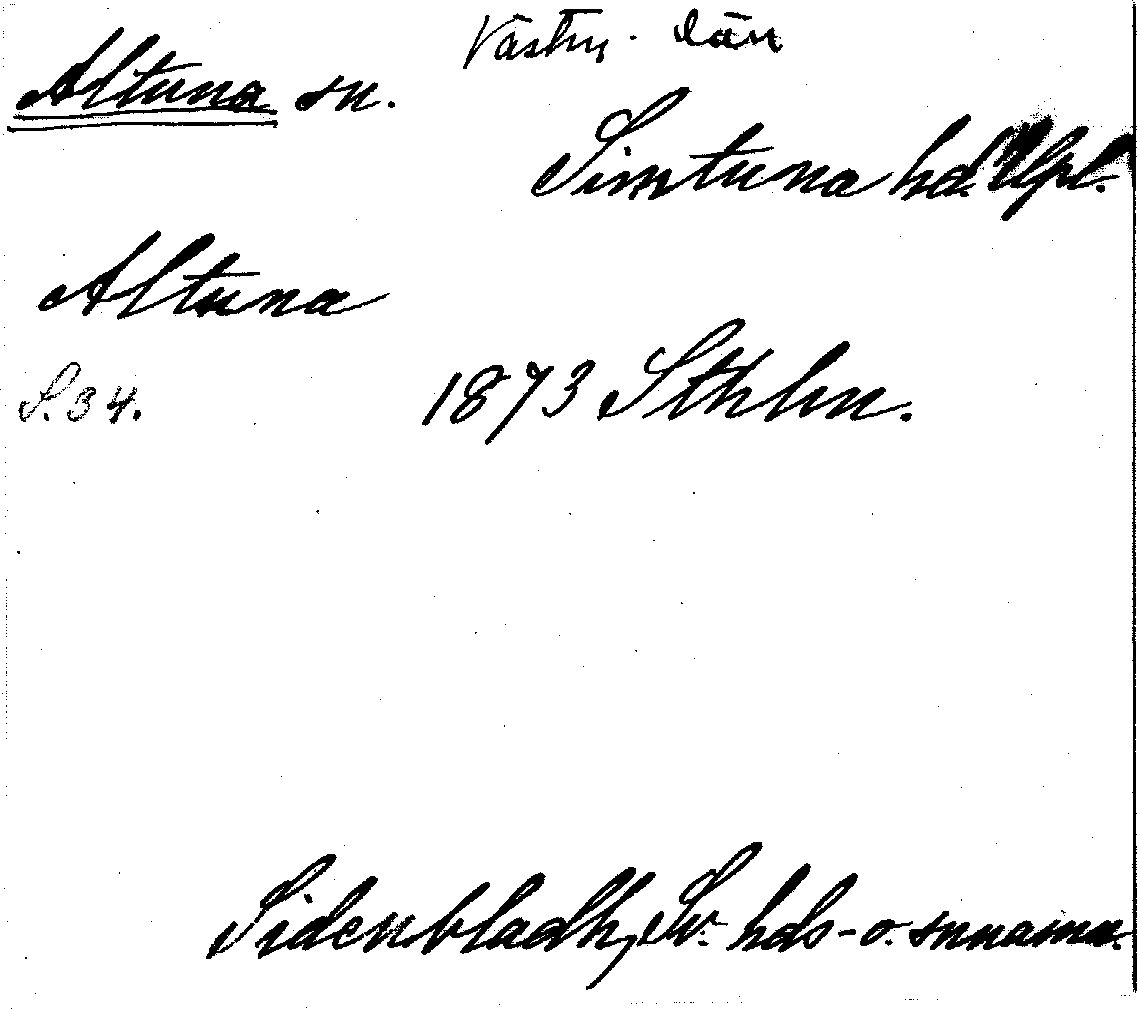 Västm. län
Altuna sn.
Simtuna hd. Upl.
Altuna
S. 34. 1873 Sthlm.
Sidenbladh, Sv. hds- o. snnamn.